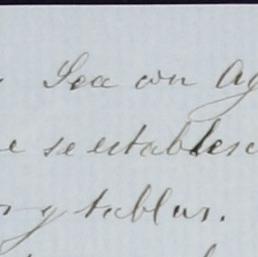 Sea con Ag
e se establesc
y tablas.